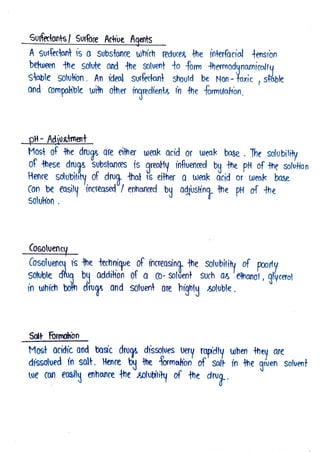 Surfactants / Surface Active Agents
A surfactant is a substance which reduces the interfacial tension
between the solute and the solvent to form thermodynamically
stable solution. An ideal surfactant should be Non-toxic, stable
and compatible with other ingredients in the formulation.
pH - Adjustment
Most of the drugs are either weak acid or weak base. The solubility
of these drugs substances is greatly influenced by the pH of the solution
Hence solubility of drug that is either a weak acid or weak base
can be easily increased / enhanced by adjusting the pH of the
solution.
Cosolvency
Cosolvency is the technique of increasing the solubility of poorly
soluble drug by addition of a co-solvent such as ethanol, glycerol
in which both drugs and solvent are highly soluble.
Salt Formation
Most acidic and basic drugs dissolves very rapidly when they are
dissolved in salt. Hence by the formation of salt in the given solvent
we can easily enhance the solubility of the drug.